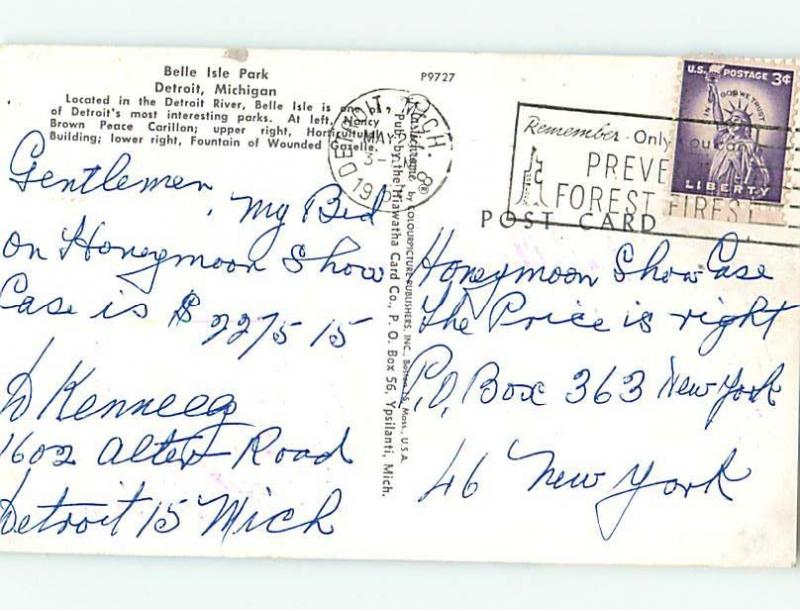 Belle Isle Park
Detroit, Michigan
Located in the Detroit River, Belle Isle is one
of Detroit's most interesting parks. At left, Nancy
Brown Peace Carillon; upper right, Horticultural
Building; lower right, Fountain of Wounded Gazelle.
P9727
DETROIT, MICH.
MAY
3-
19
U.S. POSTAGE 3¢
IN GOD WE TRUST
LIBERTY
Remember - Only you can
PREVENT
FOREST FIRES!
POST CARD
Plastichrome by COLOURPICTURE PUBLISHERS, INC., Boston 15, Mass., U.S.A.
Pub. by the Hiawatha Card Co., P. O. Box 56, Ypsilanti, Mich.
Gentlemen,
My Bid
on Honeymoon Show
Case is $ 2275 15
1602 Alter Road
Detroit 15 Mich
Honeymoon Show Case
The Price is right
P.O. Box 363 New York
46 New York